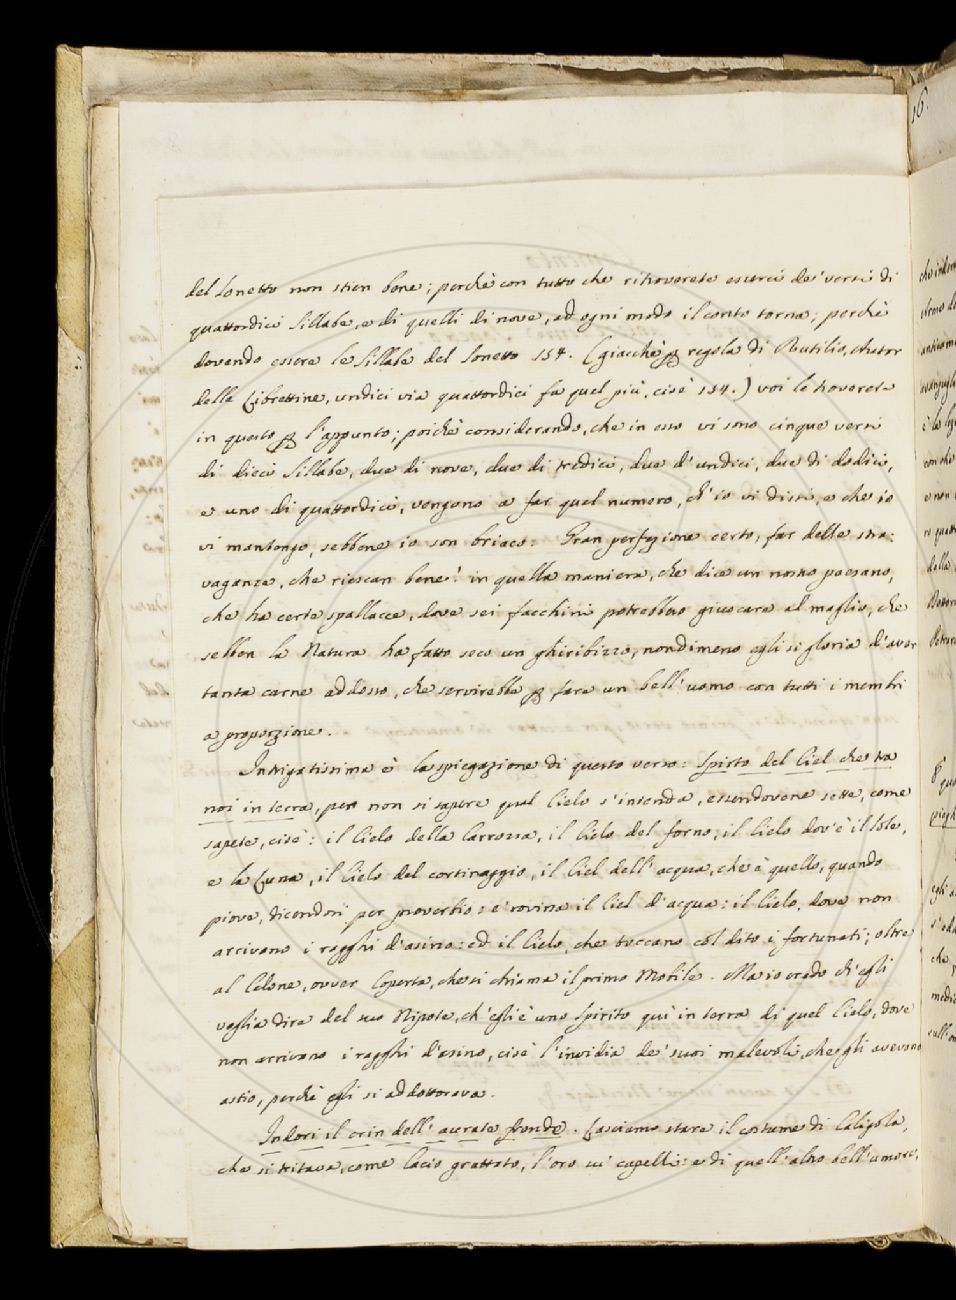 del Sonetto non stien bene; perchè con tutto che ritroverete esserci de' versi di
quattordici Sillabe, e di quelli di nove, ad ogni modo il conto torna; perchè
dovendo essere le Sillabe del Sonetto 154. (giacchè ꝑ regola di Rutilio, autor
delle Librettine, undici via quattordici fa quel più, cioè 154.) voi le troverete
in questo ꝑ l'appunto; poichè considerando, che in esso vi sono cinque versi
di dieci Sillabe, due di nove, due di tredici, due d'undici, due di dodici,
e uno di quattordici, vengono a far quel numero, ch'io vi dissi, e che io
vi mantengo, sebbene io son briaco. Gran perfezione certo, far delle stra:
vaganze, che riescan bene! in quella maniera, che dice un nostro paesano,
che ha certe spallacce, dove sei facchini potrebbno giuocare al maglio, che
sebben la Natura ha fatto seco un ghiribizzo, nondimeno egli si gloria d'aver
tanta carne addosso, che servirebbe ꝑ fare un bell'uomo con tutti i membri
a proporzione.
Intrigatissima è la spiegazione di questo verso: Spirto del Ciel che tra
noi in terra, per non si sapere qual Cielo s'intenda, essendovene sette, come
sapete, cioè: il Cielo della Carrozza, il Cielo del forno, il Cielo dov'è il Sole,
e la Luna, il Cielo del cortinaggio, il Ciel dell'acqua, che è quello, quando
piove, dicendosi per proverbio: e' rovina il Ciel d'acqua: il Cielo, dove non
arrivano i ragghi d'asino: ed il Cielo, che toccano col dito i fortunati; oltre
al Celone, ovver Coperta, che si chiama il primo Mobile. Ma io credo ch'egli
voglia dire del suo Nipote, ch'egli è uno Spirito quì in terra di quel Cielo, dove
non arrivano i ragghi d'asino, cioè l'invidia de' suoi malevoli, che gli avevano
astio, perchè egli si addottorava.
Indori il crin dell'aurate fronde. Lasciamo stare il costume di Caligola,
che si tritava, come cacio grattato, l'oro su' capelli: e di quell'altro bell'umore,
16.